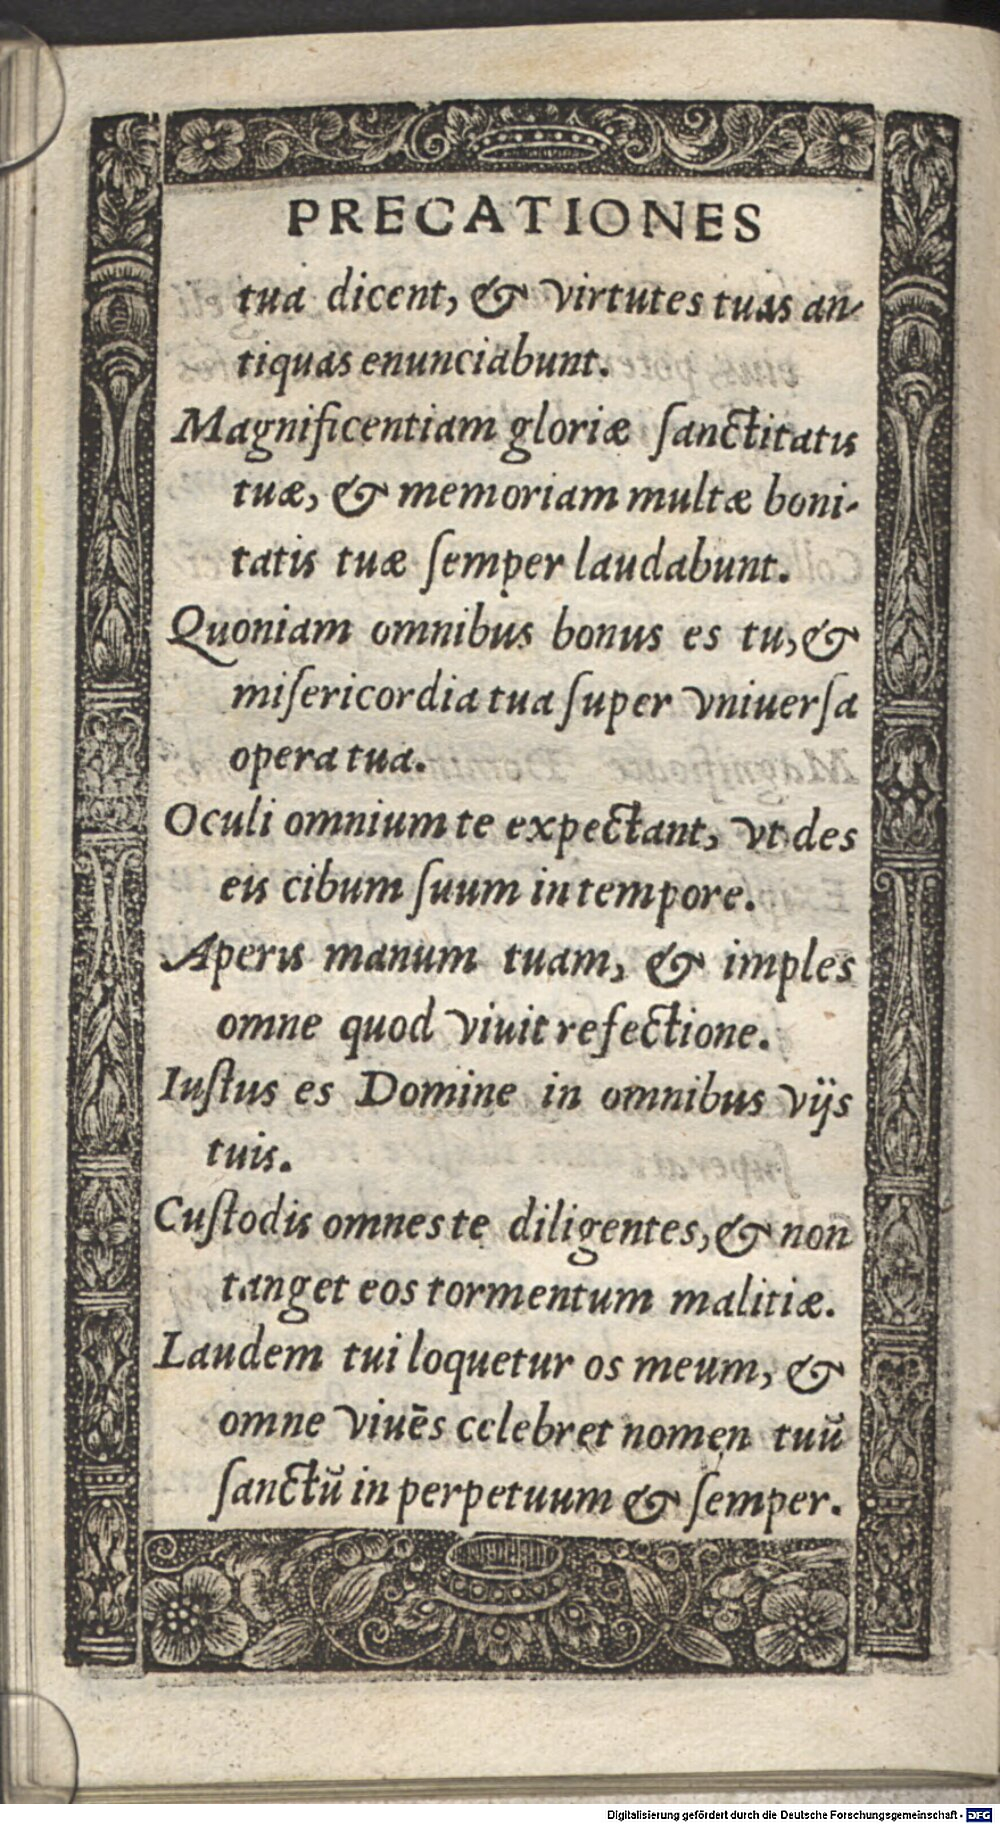 PRECATIONES
tua dicent, & virtutes tuas an-
tiquas enunciabunt.
Magnificentiam gloriæ ſanctitatis
tuæ, & memoriam multæ boni-
tatis tuæ ſemper laudabunt.
Quoniam omnibus bonus es tu, &
miſericordia tua ſuper vniuerſa
opera tua.
Oculi omnium te expectant, vt des
eis cibum ſuum in tempore.
Aperis manum tuam, & imples
omne quod viuit refectione.
Iuſtus es Domine in omnibus vijs
tuis.
Cuſtodis omnes te diligentes, & non
tanget eos tormentum malitiæ.
Laudem tui loquetur os meum, &
omne viuēs celebret nomen tuū
ſanctū in perpetuum & ſemper.
Digitalisierung gefördert durch die Deutsche Forschungsgemeinschaft - DFG